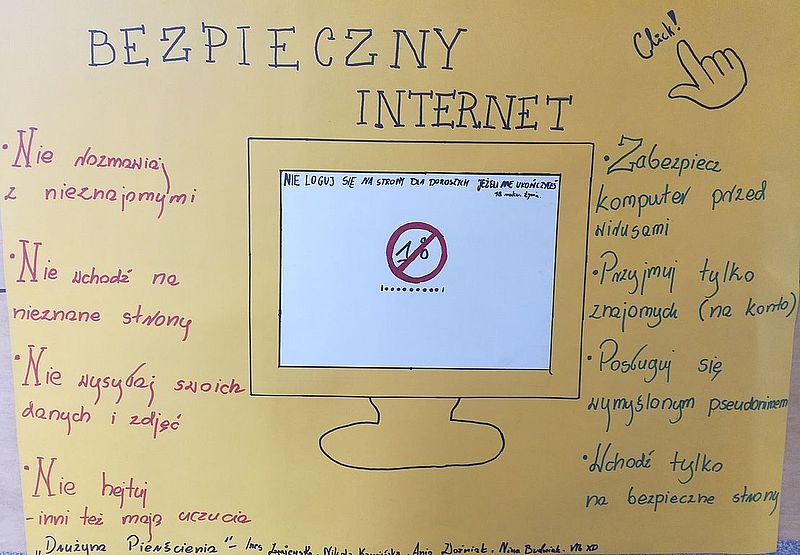 BEZPIECZNY
INTERNET
Click!
• Nie rozmawiaj
z nieznajomymi
• Nie wchodź na
nieznane strony
• Nie wysyłaj swoich
danych i zdjęć
• Nie hejtuj
- inni też mają uczucia
NIE LOGUJ SIĘ NA STRONY DLA DOROSŁYCH JEŻELI NIE UKOŃCZYŁEŚ
18 roku życia.
18
• Zabezpiecz
komputer przed
wirusami
• Przyjmuj tylko
znajomych (na konto)
• Posługuj się
wymyślonym pseudonimem
• Wchodź tylko
na bezpieczne strony
„Drużyna Pierścienia" - Ines Nikola Ania Nina